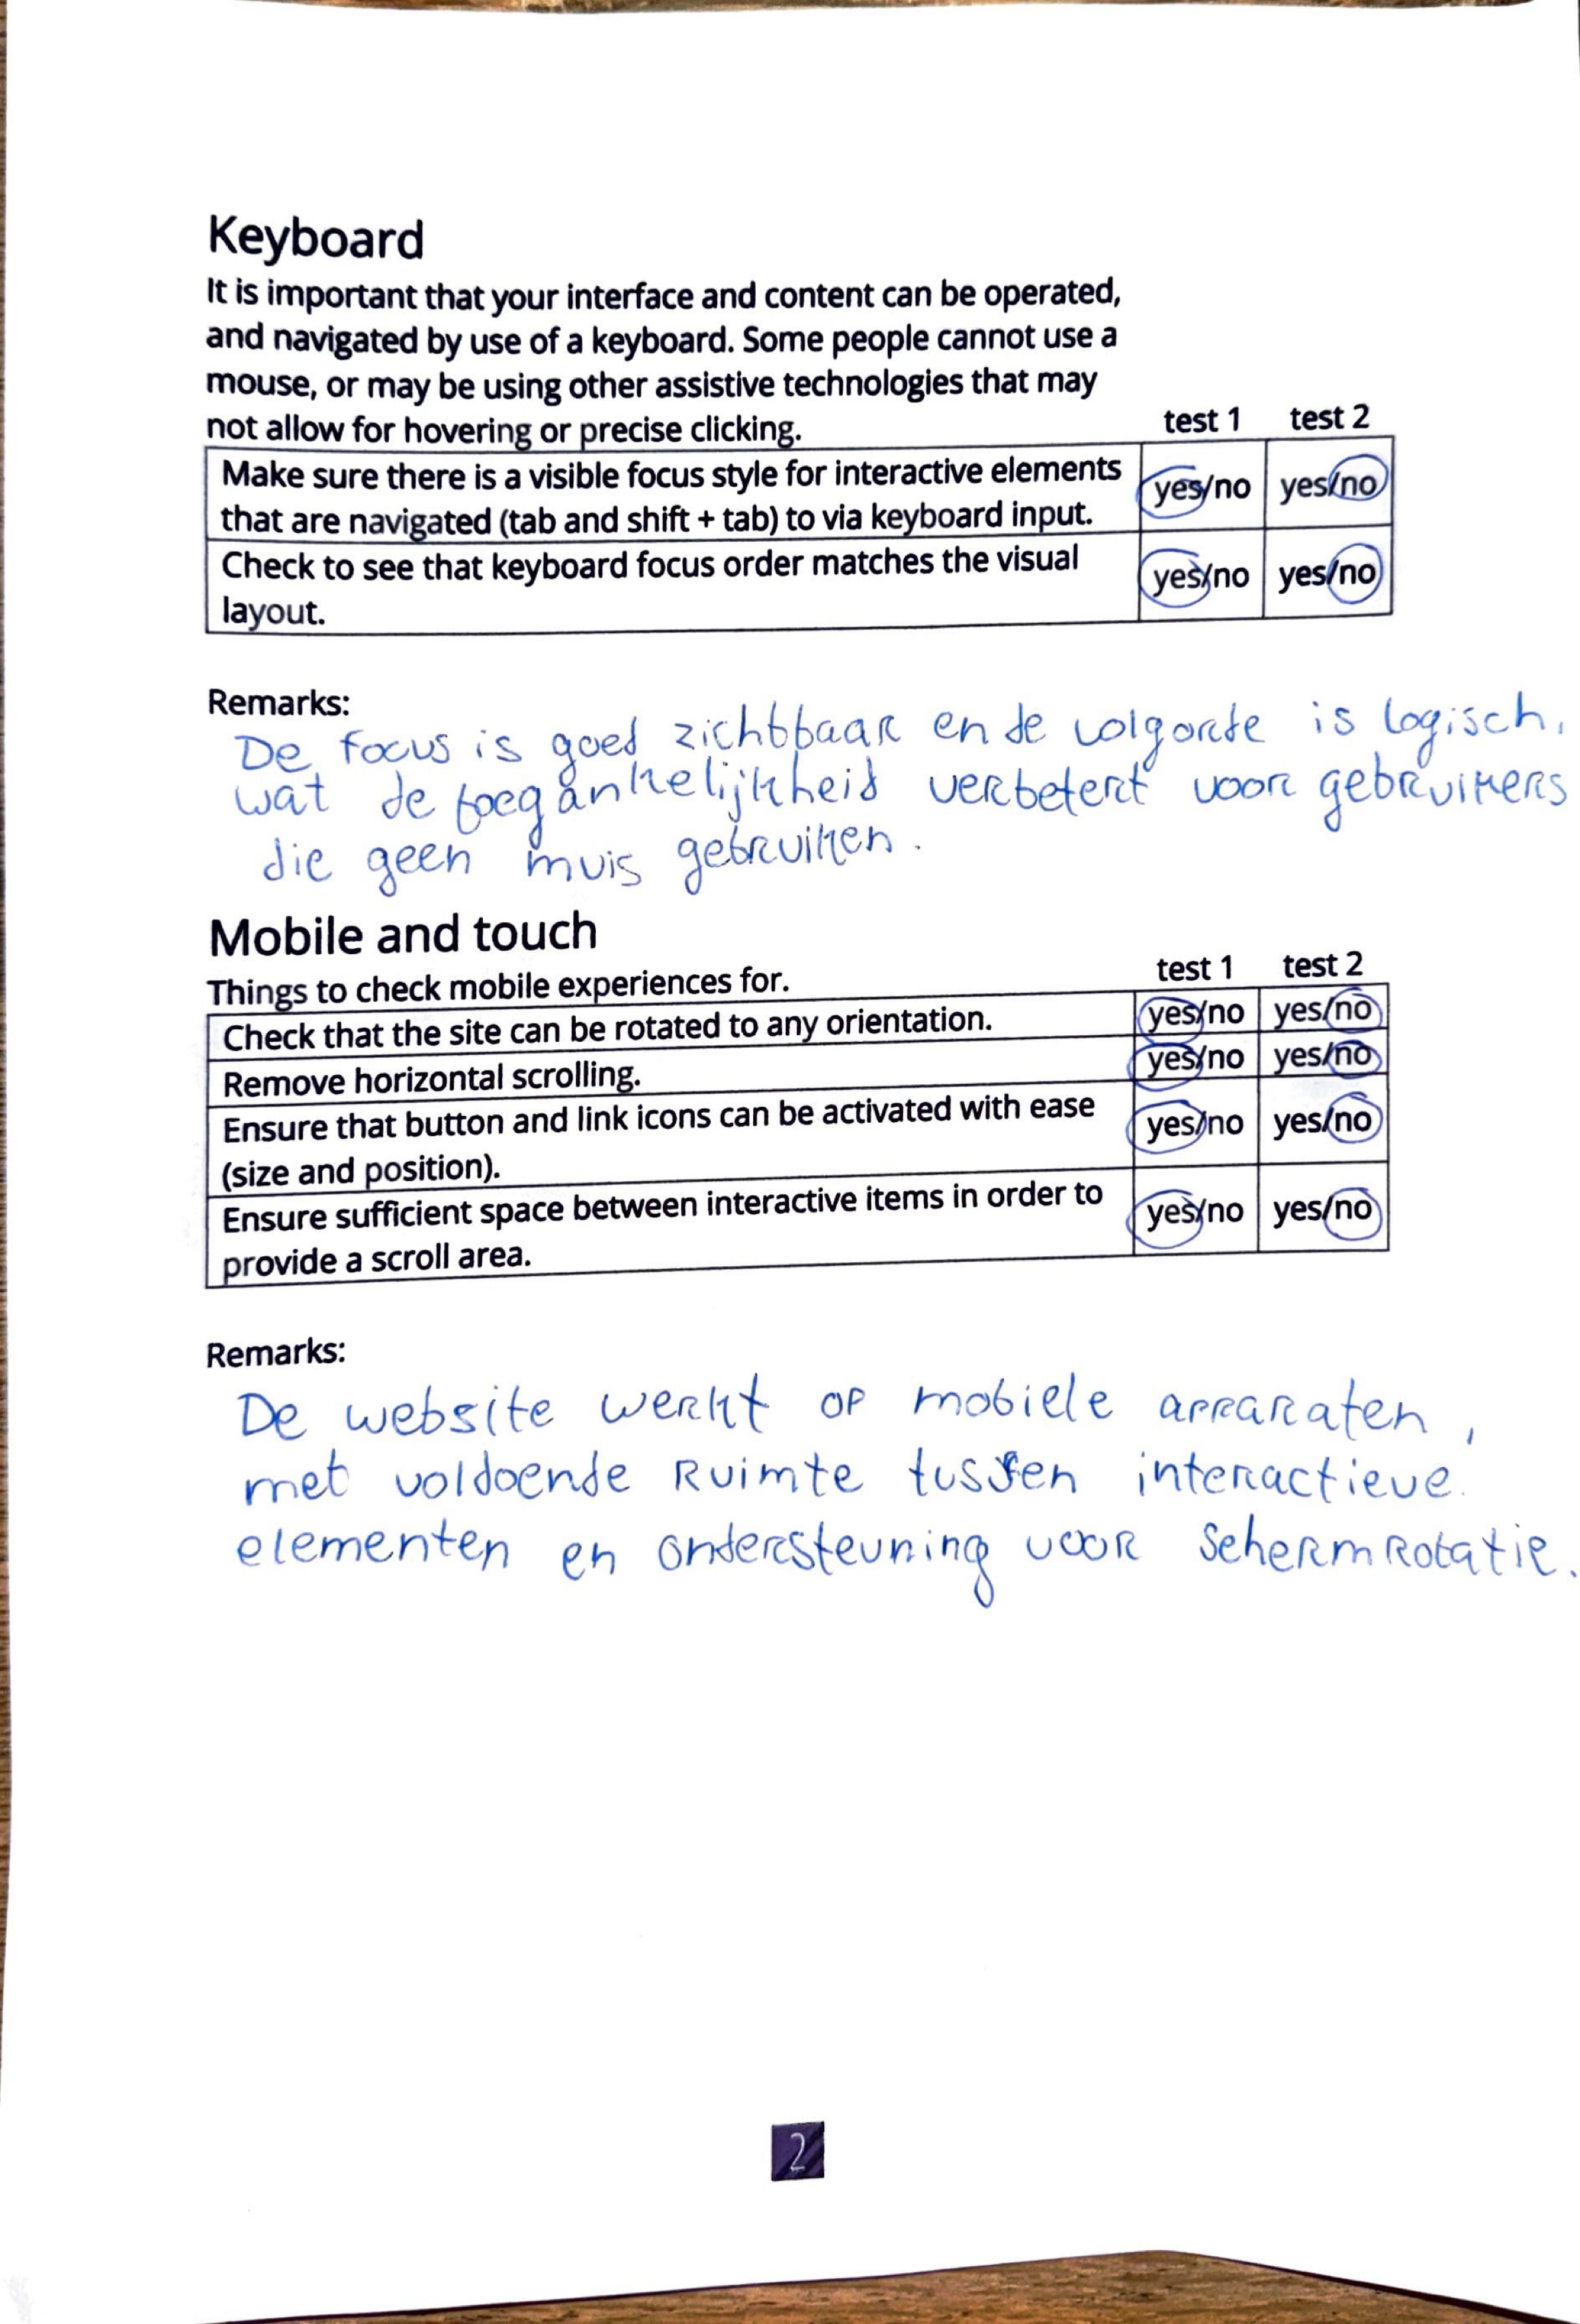 Keyboard
It is important that your interface and content can be operated,
and navigated by use of a keyboard. Some people cannot use a
mouse, or may be using other assistive technologies that may
not allow for hovering or precise clicking. test 1 test 2
Make sure there is a visible focus style for interactive elements
that are navigated (tab and shift + tab) to via keyboard input. yes/no yes/no
Check to see that keyboard focus order matches the visual
layout. yes/no yes/no
Remarks:
De focus is goed zichtbaar en de volgorde is logisch,
wat de toegankelijkheid verbetert voor gebruikers
die geen muis gebruiken.
Mobile and touch
Things to check mobile experiences for. test 1 test 2
Check that the site can be rotated to any orientation. yes/no yes/no
Remove horizontal scrolling. yes/no yes/no
Ensure that button and link icons can be activated with ease
(size and position). yes/no yes/no
Ensure sufficient space between interactive items in order to
provide a scroll area. yes/no yes/no
Remarks:
De website werkt op mobiele apparaten,
met voldoende Ruimte tussen interactieve
elementen en ondersteuning voor schermRotatie.
2